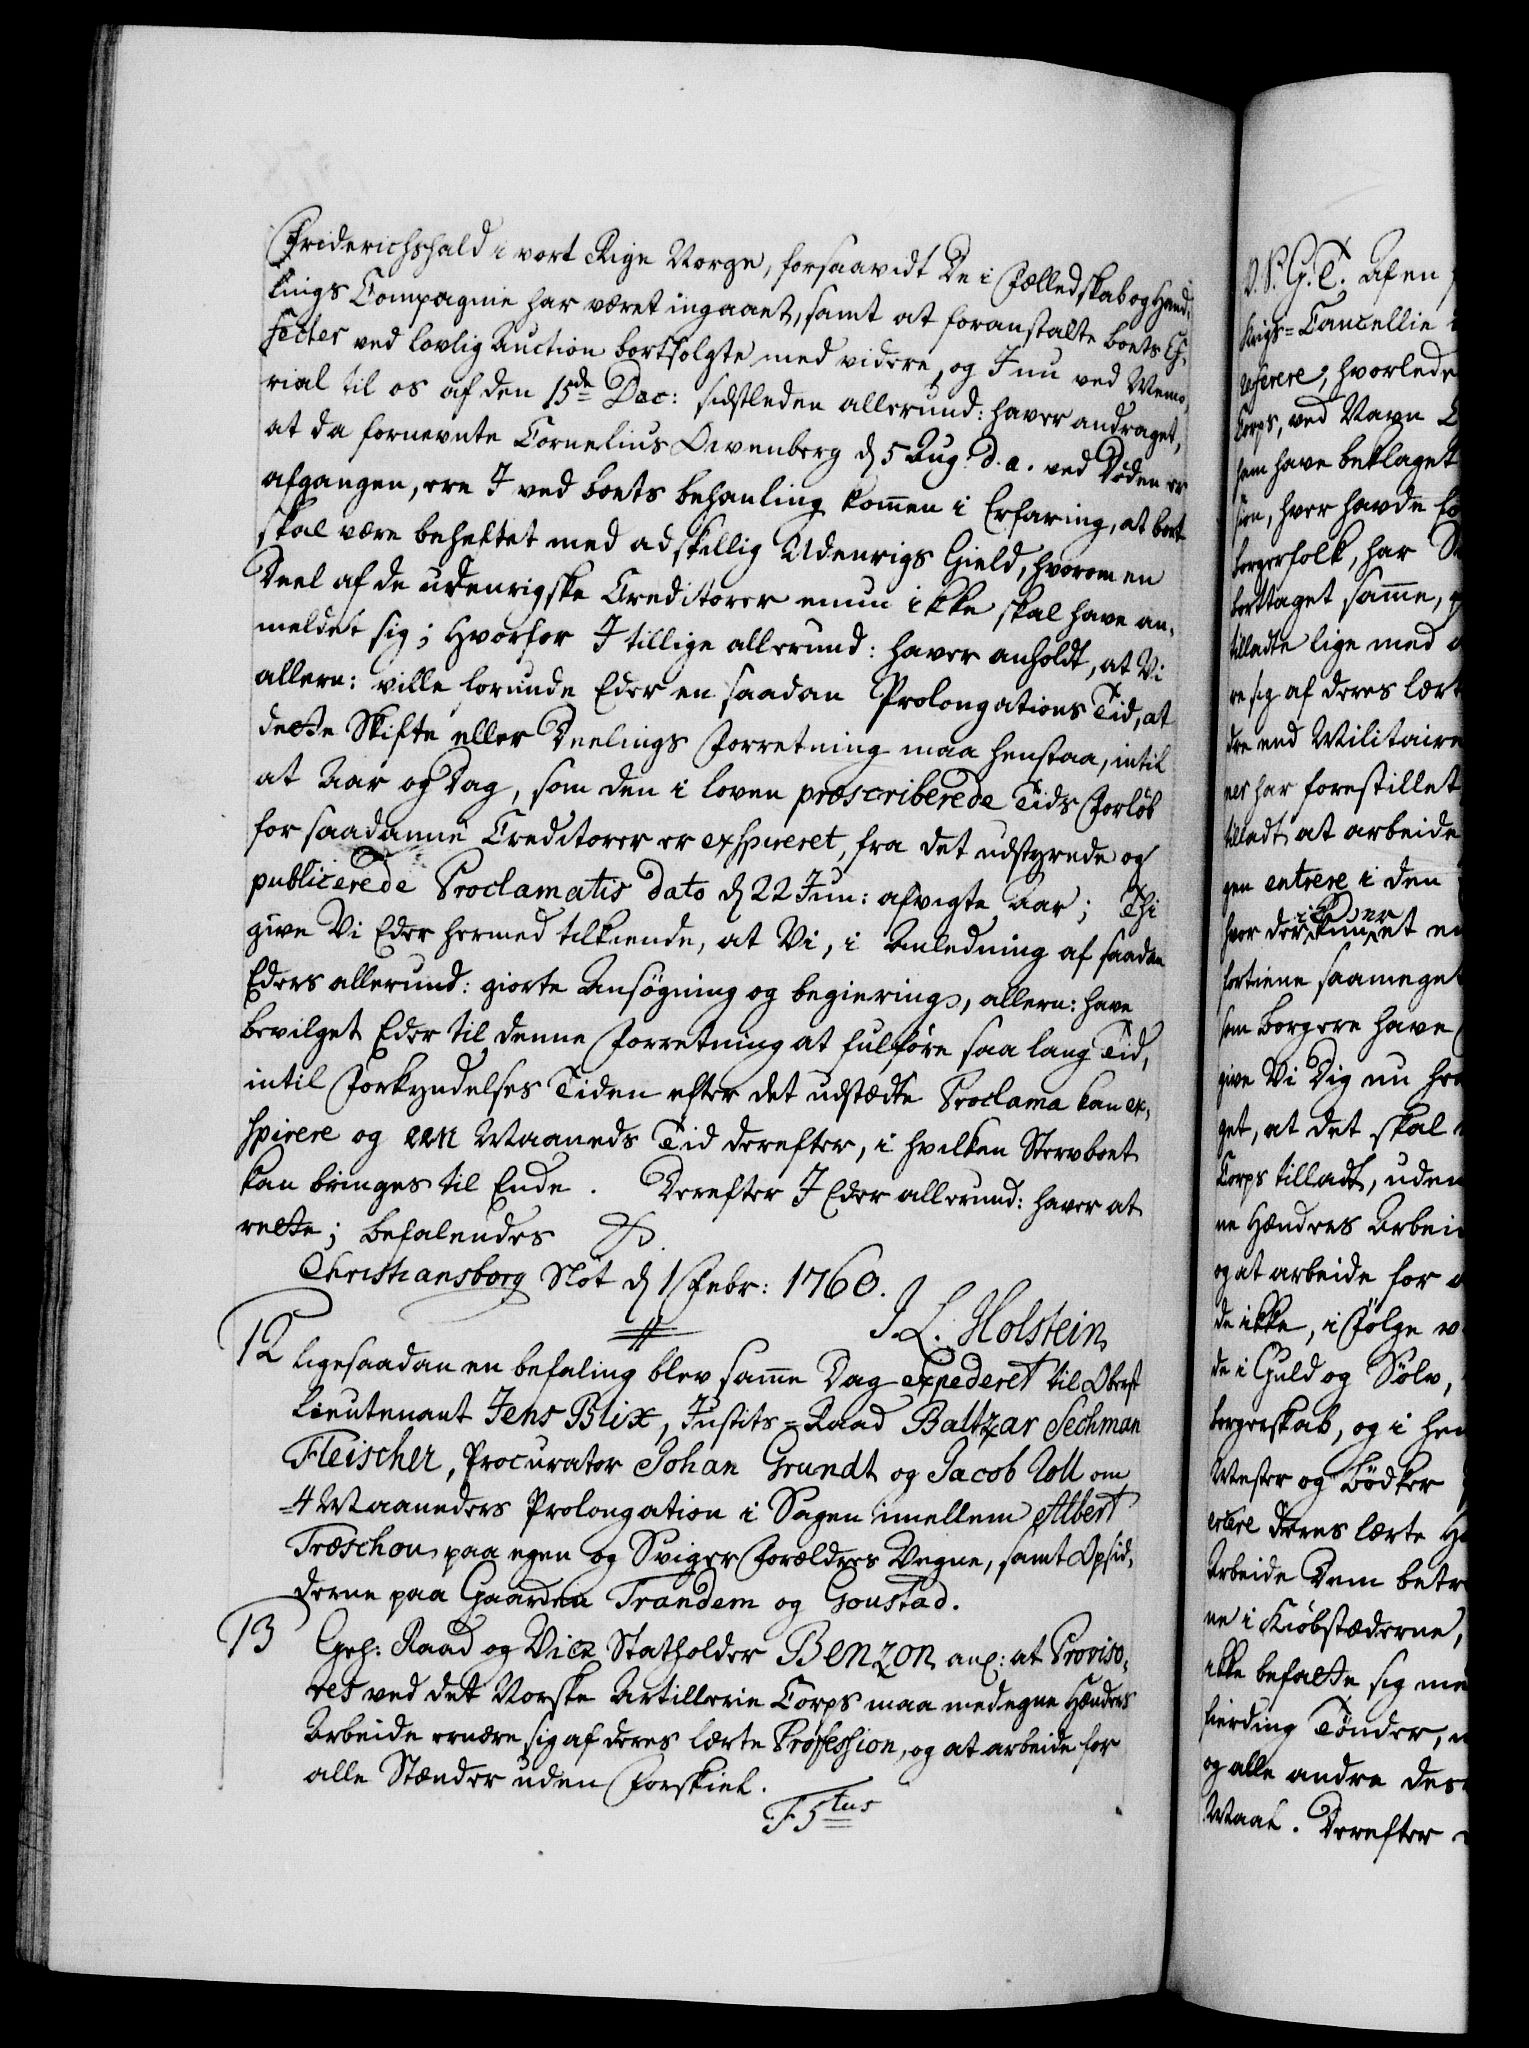 Friderichshald i vort Rige Norge, forsaavidt De i Fælledskab og Hand-
lings Compagnie har været ingaaet, samt at foranstalte boets Ef-
fecter ved lovlig Auction bortsolgte med videre, og I nu ved Memo-
rial til os af den 15de Dec: sidstleden allerund: haver andraget,
at da fornevnte Cornelius Owenberg d 5 Aug: d. a. ved Døden er
afgangen, ere I ved boets behanling kommen i Erfaring, at boet
skal være beheftet med adskellig Udenrigs Gield, hvorom en
Deel af de udenrigske Creditorer ennu ikke skal have an-
meldet sig; Hvorfor I tillige allerund: haver anholdt, at Vi
allern: ville forunde Eder en saadan Prolongations Tid, at
dette Skifte eller Deelings Forretning maa henstaa, intil
at Aar og Dag, som den i loven præscriberede Tids Forløb
for saadanne Creditorer er exspireret, fra det udstyrede og
publicerede Proclamatis dato d 22 Jun: afvigte Aar; Thi
give Vi Eder hermed tilkiende, at Vi, i Anledning af saadan
Eders allerund: giorte Ansøgning og begiering, allern: have
bevilget Eder til denne Forretning at fulføre saa lang Tid,
intil Forkyndelses Tiden efter det udstædte Proclama kan ex-
spirere og een Maaneds Tid derefter, i hvilken Stervboet
kan bringes til Ende. Derefter I Eder allerund: haver at
rette; befalendes
Christiansborg Slot d 1 Febr: 1760.
J L. Holstein
12 Ligesaadan en befaling blev samme Dag expederet til Oberst
Lieutenant Jens Blix, Justits=Raad Baltzar Sechman
Fleischer, Procurator Johan Grundt og Jacob Coll om
4 Maaneders Prolongation i Sagen imellem Albert
Træschou paa egen og Sviger Forældres Vegne, samt Opsid-
derne paa Gaarden Trandem og Goustad.
13 Geh: Raad og Vice Statholder Benzon anl: at Proviso-
res ved det Norske Artillerie Corps maa med egne Hænders
Arbeide ernære sig af deres lærte Profession, og at arbeide for
alle Stænder uden Forskiel.
F. 5tus
V. S. G. T. Af en
Krigs=Cancellie
referere, hvorlede
Corps, ved Navn
ham have beklaget
sion, hver havde
borgerfolk, har
borttaget samme,
tilladte lige med
re sig af deres lært
dre end Militaire
ner har forestillet
tilladt at arbeide
gen entrere i den
ikke er
hvor der kunnet
fortiene saameget
som borgere have
give Vi Dig nu
get, at det skal
Corps tilladt, uden
ne Hænders Arbei
og at arbeide for
de ikke, i Følge
de i Guld og Sølv,
borgerskab, og i
Mester og Bødker
ercere deres lærte
Arbeide Dem betr
ne i Kiøbstæderne,
ikke befatte sig me
fierding Tønder,
og alle andre des
Maal. Derefter